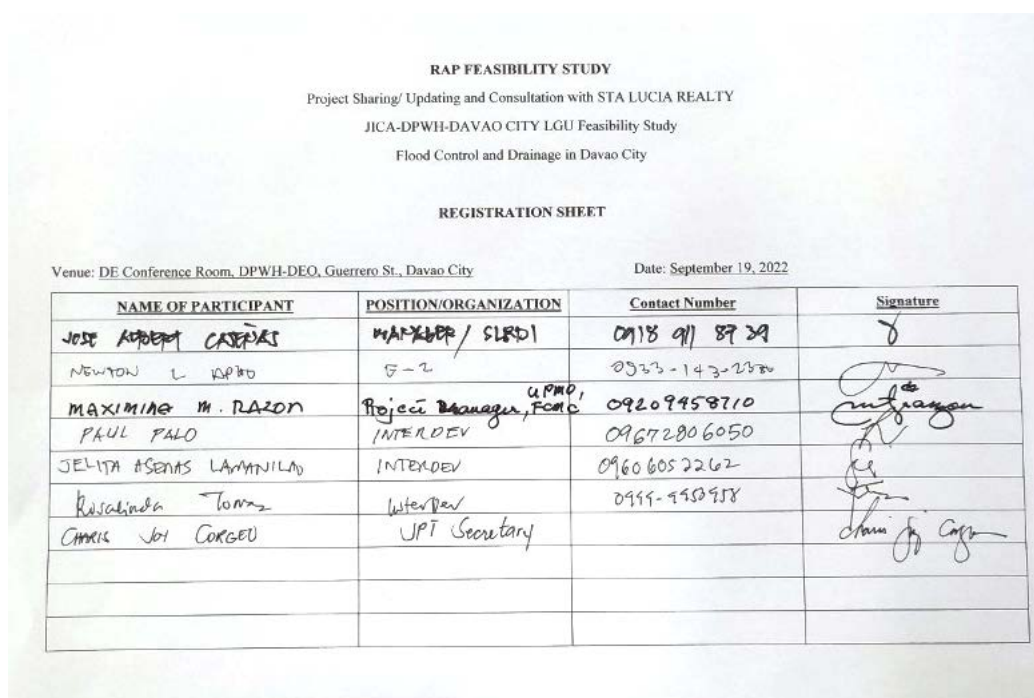 RAP FEASIBILITY STUDY
Project Sharing/ Updating and Consultation with STA LUCIA REALTY
JICA-DPWH-DAVAO CITY LGU Feasibility Study
Flood Control and Drainage in Davao City
REGISTRATION SHEET
Venue: DE Conference Room, DPWH-DEO, Guerrero St., Davao City Date: September 19, 2022
NAME OF PARTICIPANT POSITION/ORGANIZATION Contact Number Signature
JOSE MANAGER / SLRDI 0918 911 8739
NEWTON L 0933-143-2380
MAXIMINO M. RAZON Project Manager, UPMO, FCMC 09209458710
PAUL PALO INTERDEV 09672806050
JELITA ASENAS LAMANILAO INTERDEV 09606052262
Rosalinda InterDev
CHARIS JOY CORGEU JPT Secretary